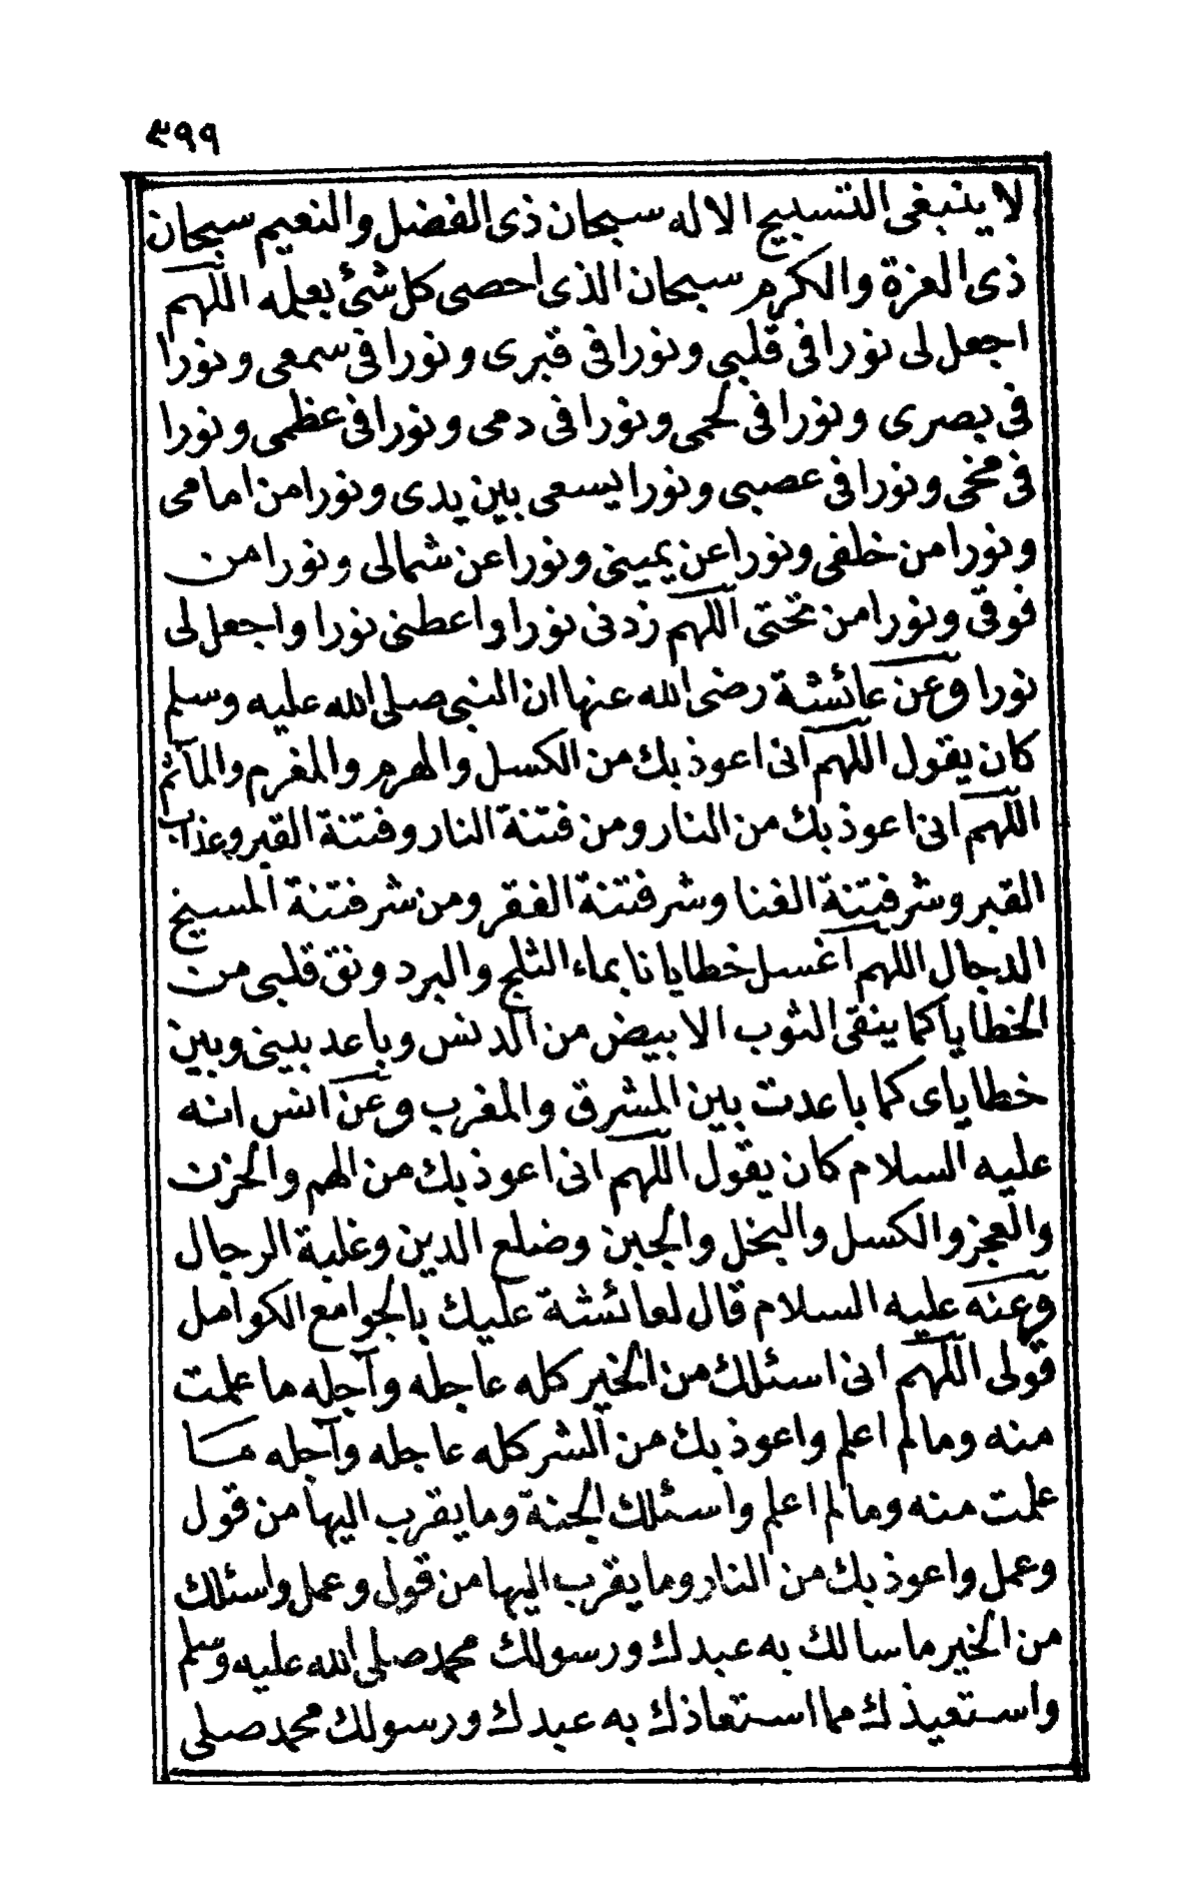 ٣٩٩
لا ينبغى التسبيح الا له سبحان ذى الفضل والنعيم سبحان
ذى العزة والكرم سبحان الذى احصى كل شئ بعلمه اللهم
اجعل لى نورا فى قلبى ونورا فى قبرى ونورا فى سمعى ونورا
فى بصرى ونورا فى لحمى ونورا فى دمى ونورا فى عظمى ونورا
فى مخى ونورا فى عصبى ونورا يسعى بين يدى ونورا من امامى
ونورا من خلفى ونورا عن يمينى ونورا عن شمالى ونورا من
فوقى ونورا من تحتى اللهم زدنى نورا واعطنى نورا واجعل لى
نورا وعن عائشة رضى الله عنها ان النبى صلى الله عليه وسلم
كان يقول اللهم انى اعوذ بك من الكسل والهرم والمغرم والمآثم
اللهم انى اعوذ بك من النار ومن فتنة النار وفتنة القبر وعذاب
القبر وشر فتنة الغنا وشر فتنة الفقر ومن شر فتنة المسيخ
الدجال اللهم اغسل خطايانا بماء الثلج والبرد ونق قلبى من
الخطايا كما ينقى الثوب الابيض من الدنس وباعد بينى وبين
خطاياى كما باعدت بين المشرق والمغرب وعن انس انه
عليه السلام كان يقول اللهم انى اعوذ بك من الهم والحزن
والعجز والكسل والبخل والجبن وضلع الدين وغلبة الرجال
وعنه عليه السلام قال لعائشة عليك بالجوامع الكوامل
قولى اللهم انى اسئلك من الخير كله عاجله وآجله ما علمت
منه وما لم اعلم واعوذ بك من الشر كله عاجله وآجله ما
علمت منه وما لم اعلم واسئلك الجنة وما يقرب اليها من قول
وعمل واعوذ بك من النار وما يقرب اليها من قول وعمل واسئلك
من الخير ما سالك به عبدك ورسولك محمد صلى الله عليه وسلم
واستعيذك مما استعاذك به عبدك ورسولك محمد صلى